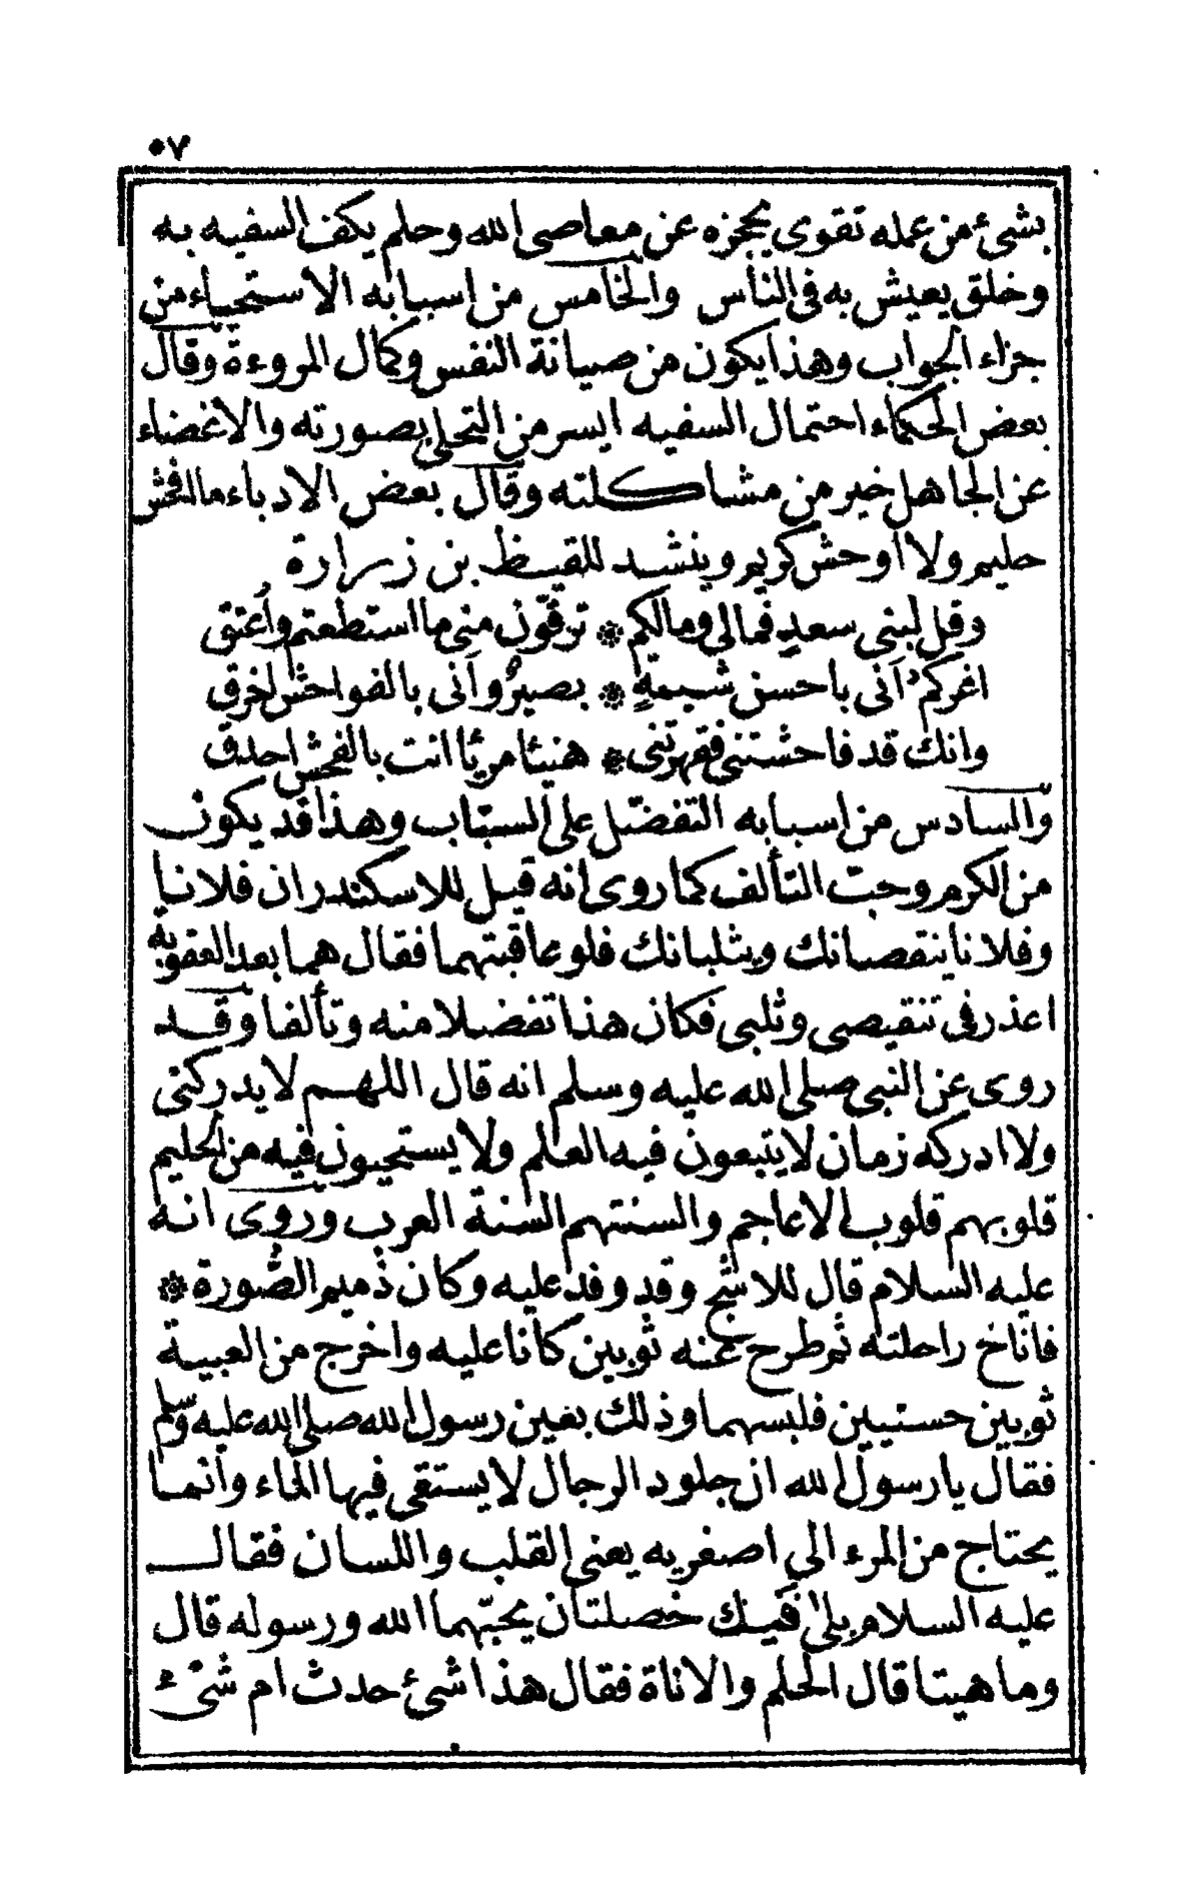 ٥٧
بشئ من عمله تقوى يحجزه عن معاصى الله وحلم يكف السفيه به
وخلق يعيش به فى الناس والخامس من اسبابه الاستحياء من
جزاء الجواب وهذا يكون من صيانة النفس وكمال المروءة وقال
بعض الحكماء احتمال السفيه ايسر من التحلى بصورته والاغضاء
عن الجاهل خير من مشاكلته وقال بعض الادباء ما افحش
حليم ولا اوحش كريم وينشد للقيط بن زرارة
وقل لبنى سعد فمالى ومالكم ۞ ترقّون منى ما استطعتم واعتق
اغركم انى باحسن شيمةٍ ۞ بصيرٌ وانى بالفواحش اخرق
وانك قد فاحشتنى فقهرتنى ۞ هنيئا مريئا انت بالفحش احدق
والسادس من اسبابه التفضّل على السبّاب وهذا قد يكون
من الكرم وحبّ التألف كما روى انه قيل للاسكندر ان فلانا
وفلانا ينقصانك ويثلبانك فلو عاقبتهما فقال هما بعد العقوبه
اعذر فى تنقيصى وثلبى فكان هذا تفضلا منه وتألفا وقد
روى عن النبى صلى الله عليه وسلم انه قال اللهم لا يدركنى
ولا ادركه زمان لا يتبعون فيه العلم ولا يستحيون فيه من الحليم
قلوبهم قلوب الاعاجم والسنتهم السنة العرب وروى انه
عليه السلام قال للاشج وقد وفد عليه وكان ذميم الصُّورة ۞
فاناخ راحلته ثم طرح عنه ثوبين كانا عليه واخرج من العيبة
ثوبين حسنيين فلبسهما وذلك بعين رسول الله صلى الله عليه وسلم
فقال يا رسول الله ان جلود الرجال لا يستقى فيها الماء وانما
يحتاج من المرء الى اصغريه يعنى القلب واللسان فقال
عليه السلام بلى ففيك خصلتان يحبّهما الله ورسوله قال
وما هيتا قال الحلم والاناة فقال هذا شئ حدث ام شئ